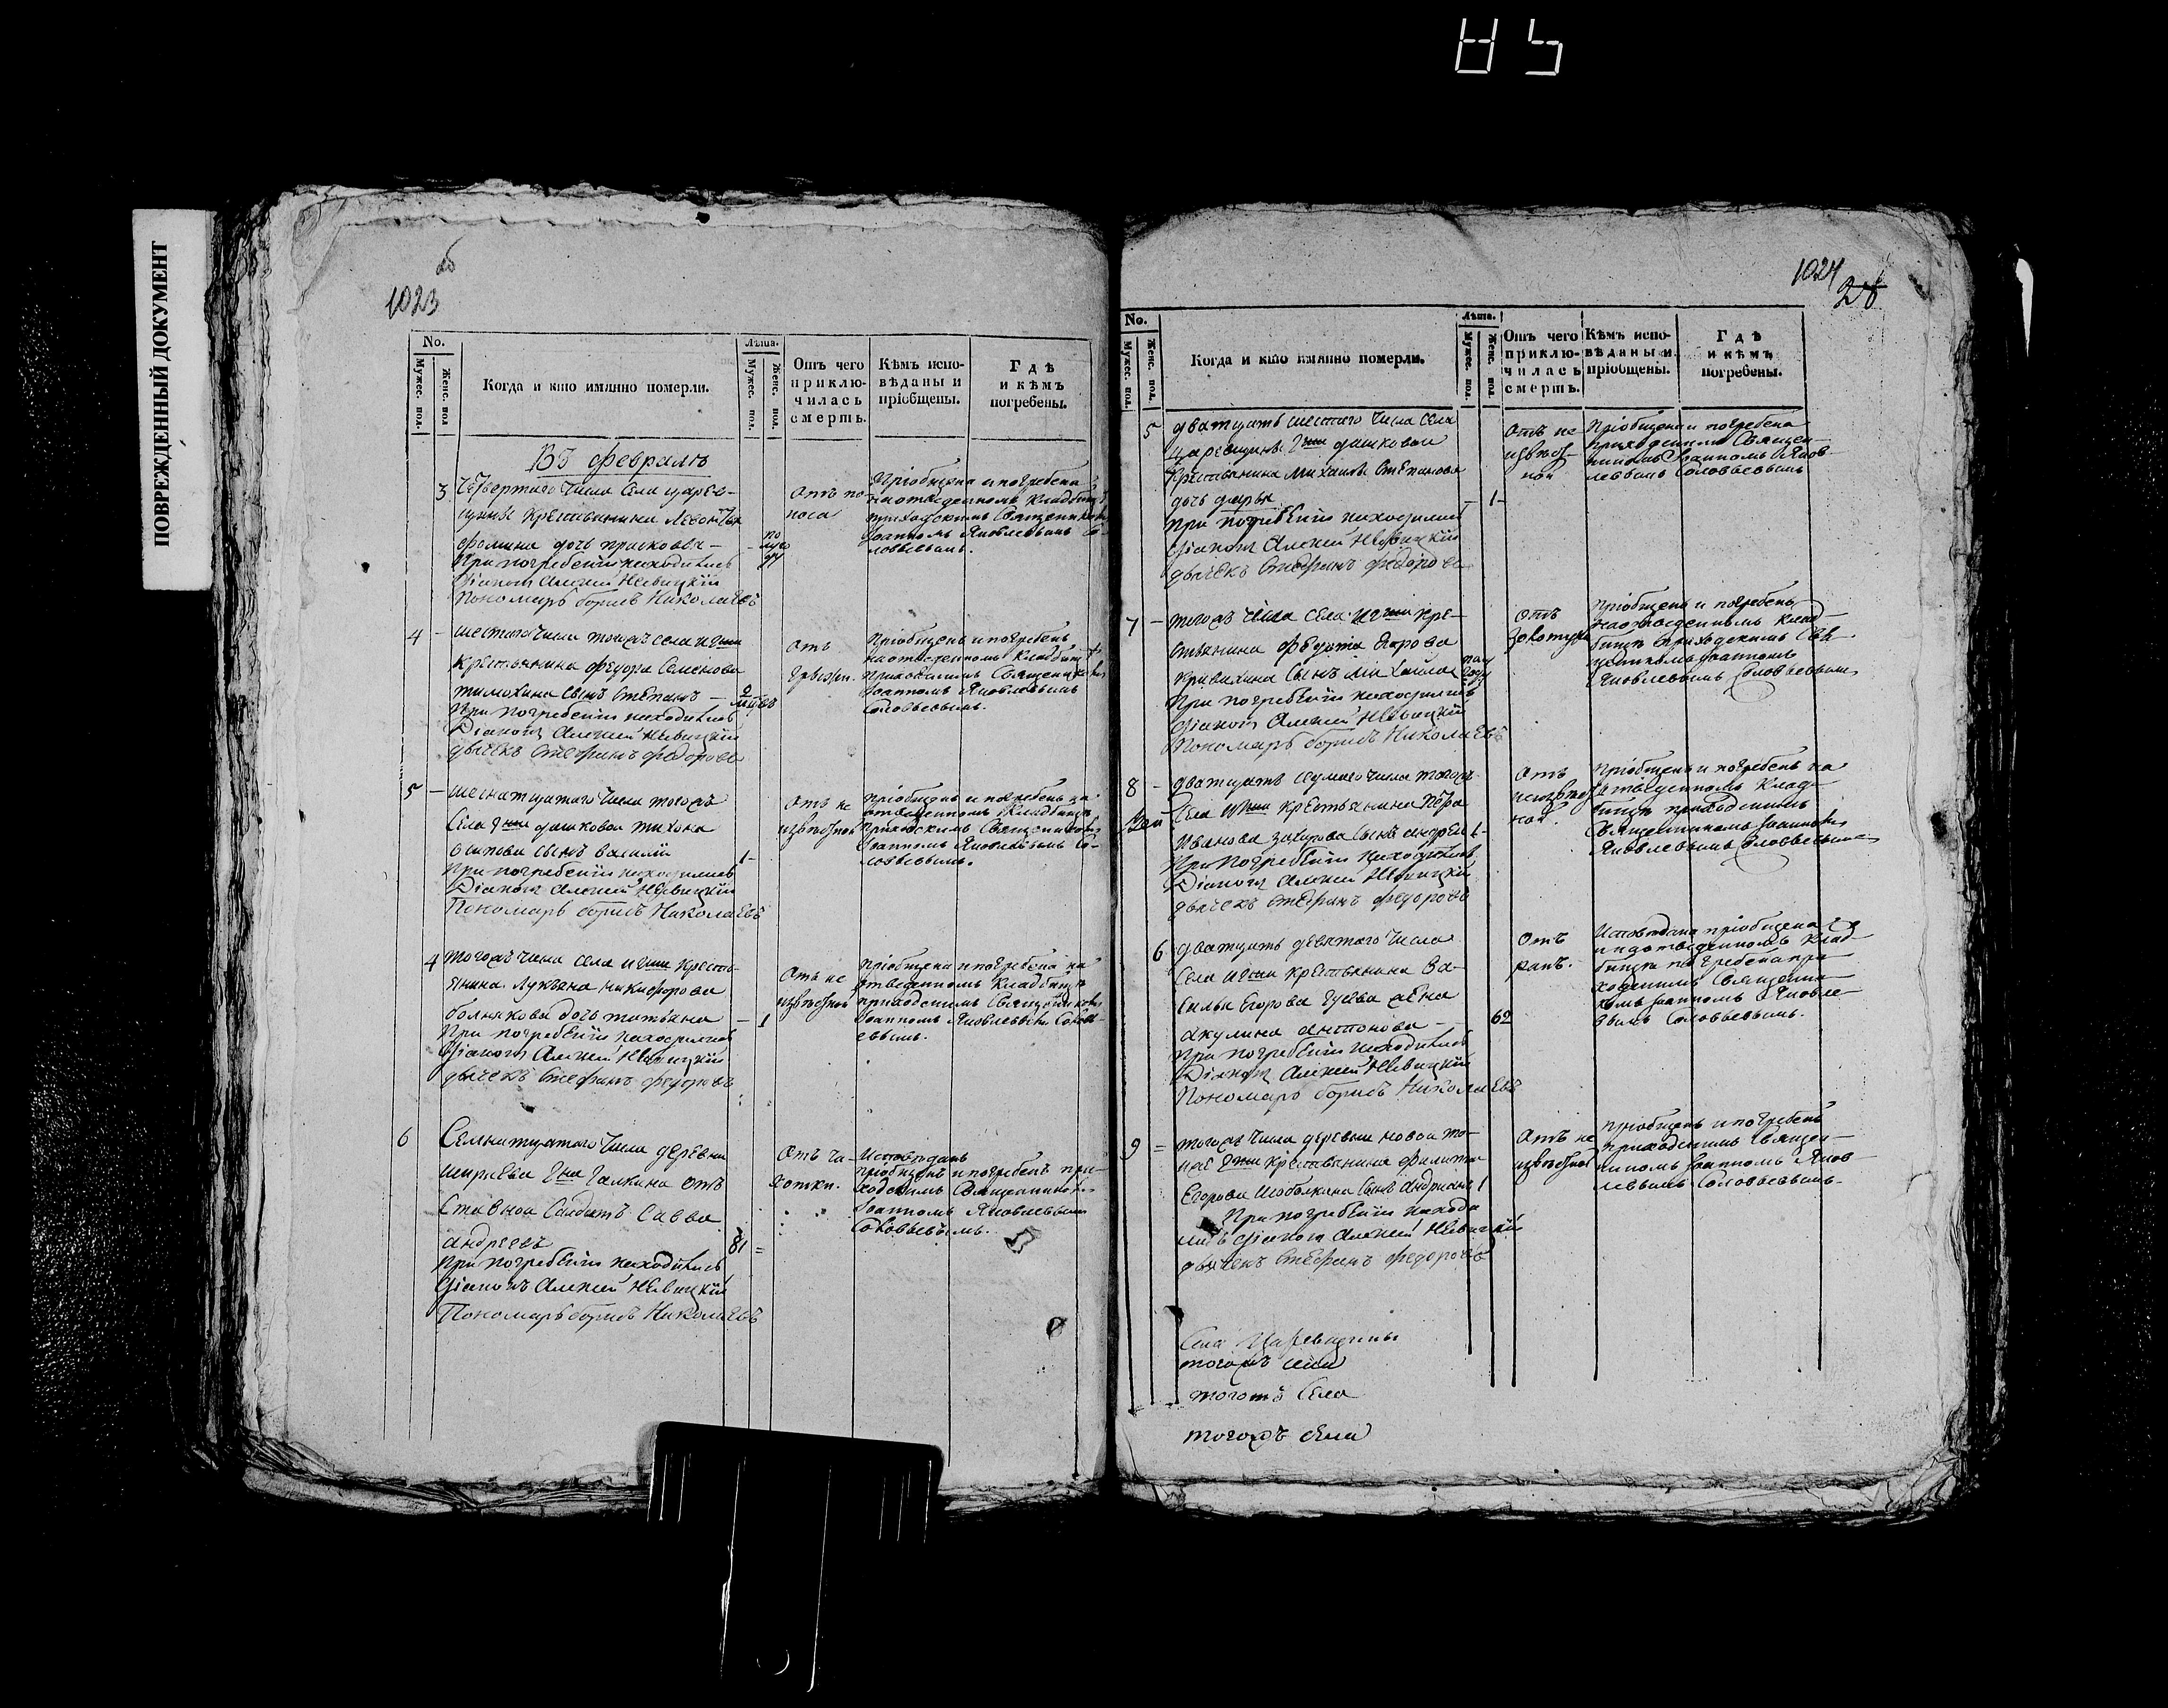 ПОВРЕЖДЕННЫЙ ДОКУМЕНТ
1023
No.
Мужес. пол.
Женс. пол
Когда и кто имянно померли.
Лѣта.
Мужес. пол.
Женс. пол.
Отъ чего приклю-
чилась смерть.
Кѣмъ испо-
вѣданы и
пріобщены.
Гдѣ
и кѣмъ
погребены.
Въ февралѣ
3
Четвертаго числа села царев-
щины крестьянина Леонтья
фомина дочь прасковья -
При погребеніи находились
Діаконъ Алексей Невицкій
Пономарь борисъ Николаевъ
по
луго
ду
Отъ по-
носа
Пріобщена и погребена
на отведенномъ кладбищѣ
приходскимъ Священникомъ
Іоанномъ Яковлевымъ Со-
ловьевымъ.
4 -
шестаго числа тогожъ села
крестьянина федора Семенова
тимохина сынъ Степанъ -
При погребеніи находились
Діаконъ Алексей Невицкій
дьячекъ Стефанъ федоровъ
2
Отъ
грызи.
Пріобщенъ и погребенъ
на отведенномъ кладбищѣ
приходскимъ Священникомъ
Іоанномъ Яковлевымъ
Соловьевымъ.
5 -
шеснатцатаго числа тогожъ
села дашковой тихона
осипова сынъ василій
При погребеніи находились
Діаконъ Алексей Невицкій
Пономарь борисъ Николаевъ
1 -
Отъ не
извѣстной
пріобщенъ и погребенъ на
отведенномъ кладбищѣ
приходскимъ Священникомъ
Іоанномъ Яковлевымъ Со-
ловьевымъ.
4
тогожъ числа села кресть-
янина Лукьяна никифорова
болнякова дочь татьяна
При погребеніи находились
Діаконъ Алексей Невицкій
дьячекъ Стефанъ федоровъ
- 1
Отъ не
извѣстной
пріобщена и погребена на
отведенномъ кладбищѣ
приходскимъ Священникомъ
Іоанномъ Яковлевымъ Солов-
евымъ.
6
Семнатцатаго числа деревни
ширяева галкина отъ
Ставной Салдатъ Савва
андреевъ
При погребеніи находились
Діаконъ Алексей Невицкій
Пономарь борисъ Николаевъ
81 =
Отъ ча-
хотки.
Исповѣданъ
пріобщенъ и погребенъ при-
ходскимъ Священникомъ
Іоанномъ Яковлевымъ
Соловьевымъ.
1024
26
No.
Мужес. пол.
Женс. пол.
Когда и кто имянно померли.
Лѣта.
Мужес. пол.
Женс. пол.
Отъ чего
приклю-
чилась
смерть.
Кѣмъ испо-
вѣданы и
пріобщены.
Гдѣ
и кѣмъ
погребены.
5
дватцать шестаго числа села
царевщины дашковой
крестьянина Михаила Степанова
дочь дарья
При погребеніи находились
Діаконъ Алексей Невицкій
дьячекъ Стефанъ федоровъ
- 1 -
Отъ не
извѣст-
ной
Пріобщена и погребена
приходскимъ Священ-
никомъ Іоанномъ Яков-
левымъ Соловьевымъ
7 -
тогожъ числа села кре-
стьянина федота Егорова
кривихина сынъ Михайла
При погребеніи находились
Діаконъ Алексей Невицкій
Пономарь борисъ Николаевъ
пол
году
Отъ
золотухи
Пріобщенъ и погребенъ
на отведенномъ клад-
бищѣ приходскимъ Свя-
щенникомъ Іоанномъ
Яковлевымъ Соловьевымъ
8 -
дватцать седмаго числа тогожъ
села крестьянина Петра
Иванова захарова сынъ андрей
При погребеніи находились
Діаконъ Алексей Невицкій
дьячекъ Стефанъ федоровъ
1 -
Отъ
неизвѣст
ной.
Пріобщенъ и погребенъ на
отведенномъ клад-
бищѣ приходскимъ
Священникомъ Іоанномъ
Яковлевымъ Соловьевымъ
6
дватцать девятаго числа
села крестьянина Ва-
силья Егорова гусева жена
акулина антонова -
При погребеніи находились
Діаконъ Алексей Невицкій
Пономарь борисъ Николаевъ
62
Отъ
ранъ.
Исповѣдана пріобщена
и на отведенномъ клад-
бищѣ погребена при-
ходскимъ Священни-
комъ Іоанномъ Яковле-
вымъ Соловьевымъ.
9 =
тогожъ числа деревни новой
крестьянина филипа
Егорова сынъ Андриянъ
При погребеніи находи
лись Діаконъ Алексей Невицкій
дьячекъ Стефанъ федоровъ
1
Отъ не
извѣстной
пріобщенъ и погребенъ
приходскимъ Священ-
никомъ Іоанномъ Яков-
левымъ Соловьевымъ.
Села Царевщины
тогожъ села
тогожъ Села
тогожъ села